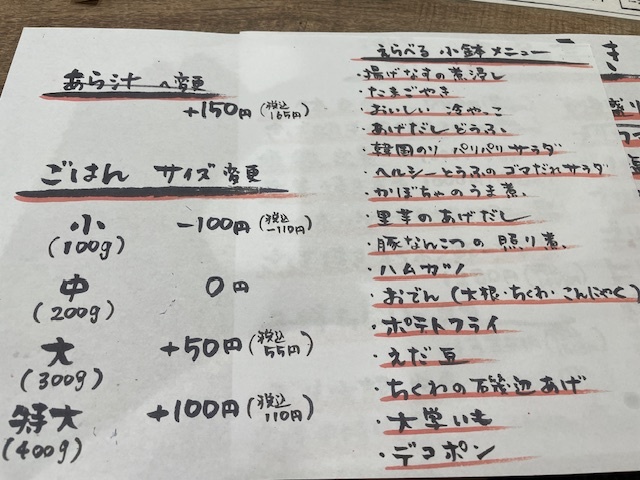 あら汁へ変更
+150円(税込165円)
ごはん サイズ変更
小 -100円(税込-110円)
(100g)
中 0円
(200g)
大 +50円(税込55円)
(300g)
特大 +100円(税込110円)
(400g)
えらべる 小鉢メニュー
・揚げなすの煮浸し
・たまごやき
・おいしい 冷やっこ
・あげだしどうふ
・韓国のり パリパリサラダ
・ヘルシーとうふのゴマだれサラダ
・かぼちゃのうま煮
・里芋のあげだし
・豚なんこつの 照り煮
・ハムカツ
・おでん(大根・ちくわ・こんにゃく)
・ポテトフライ
・えだ豆
・ちくわの石磯辺あげ
・大学いも
・デコポン